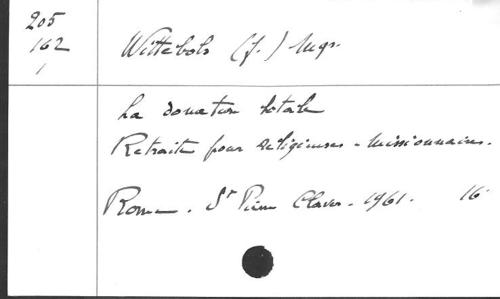 205
162
1
Wittebols (J.) Mgr.
La donation totale
Retraite pour religieuses-missionnaires.
Rome. St Pierre Claver. 1961. 16